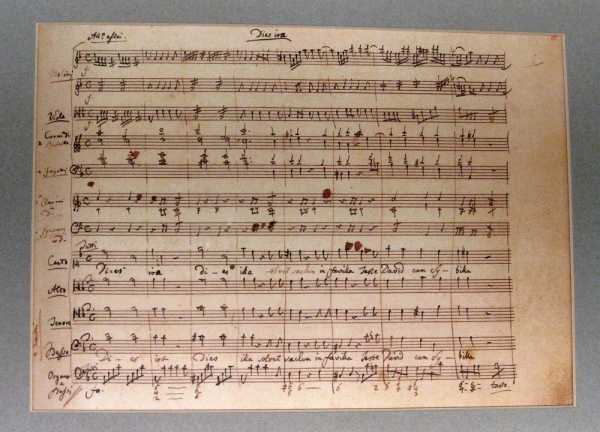 All° assai. Dies irae
Violini
f
f
Viole
f
Corni di
Bassetto
2 Fagotti
2 Clarini
Timpani
Canto
Dies ira di- es illa solvet saeclum in favilla Teste David cum Sy- billa
Alto
Tenore
Basso
Di- es ira Dies illa solvet saeclum in favilla Teste David cum Sy- billa
Organo
e
Bassi
fo: tasto